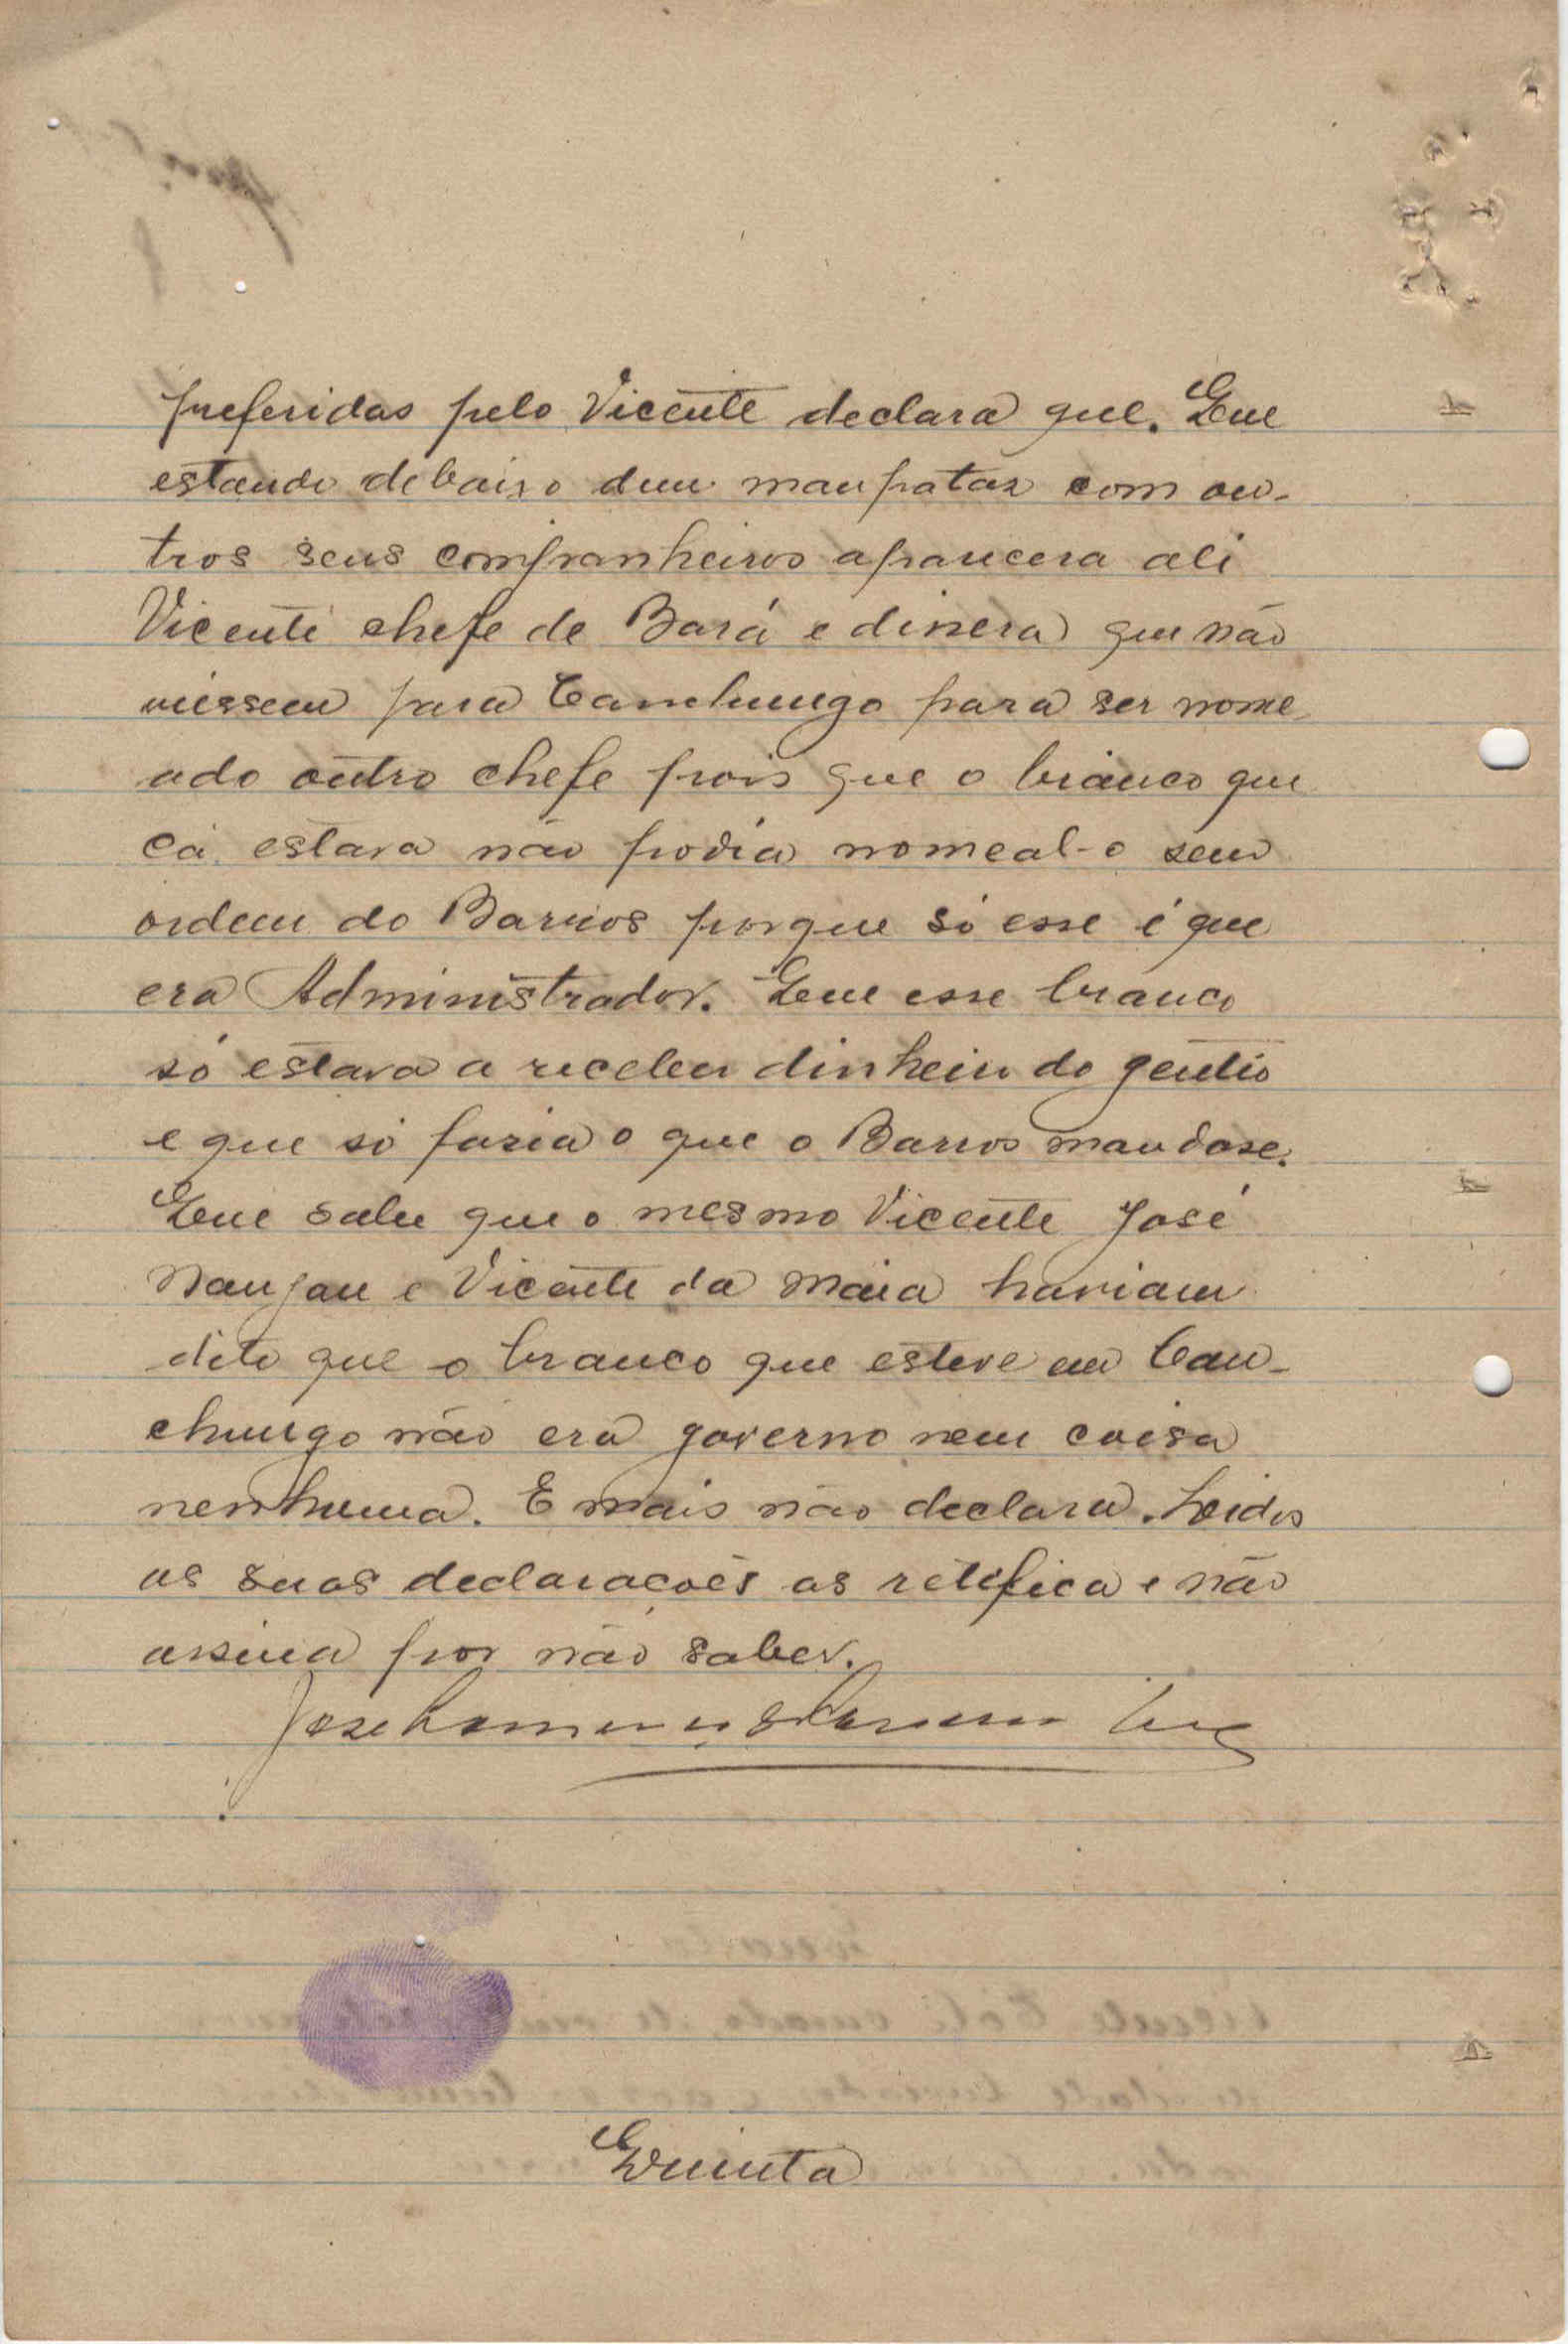 preferidas pelo Vicente declara que. Que
estando debaixo dum manpataz com ou-
tros seus companheiros aparecera ali
Vicente chefe de Bará e dissera que não
viessem para Canchungo para ser nome
ado outro chefe pois que o branco que
cá estava não podia nomeal-o sem
ordem do Barros porque só esse é que
era Administrador. Que esse branco
só estava a receber dinheiro do gentio
e que só fazia o que o Barros mandase.
Que sabe que o mesmo Vicente José
Nanjan e Vicente da Maia haviam
dito que o branco que esteve em Can-
chungo não era governo nem coisa
nenhuma. E mais não declara. Lidos
as suas declaracoes as retefica e não
assina por não saber.
Jose
Quinta